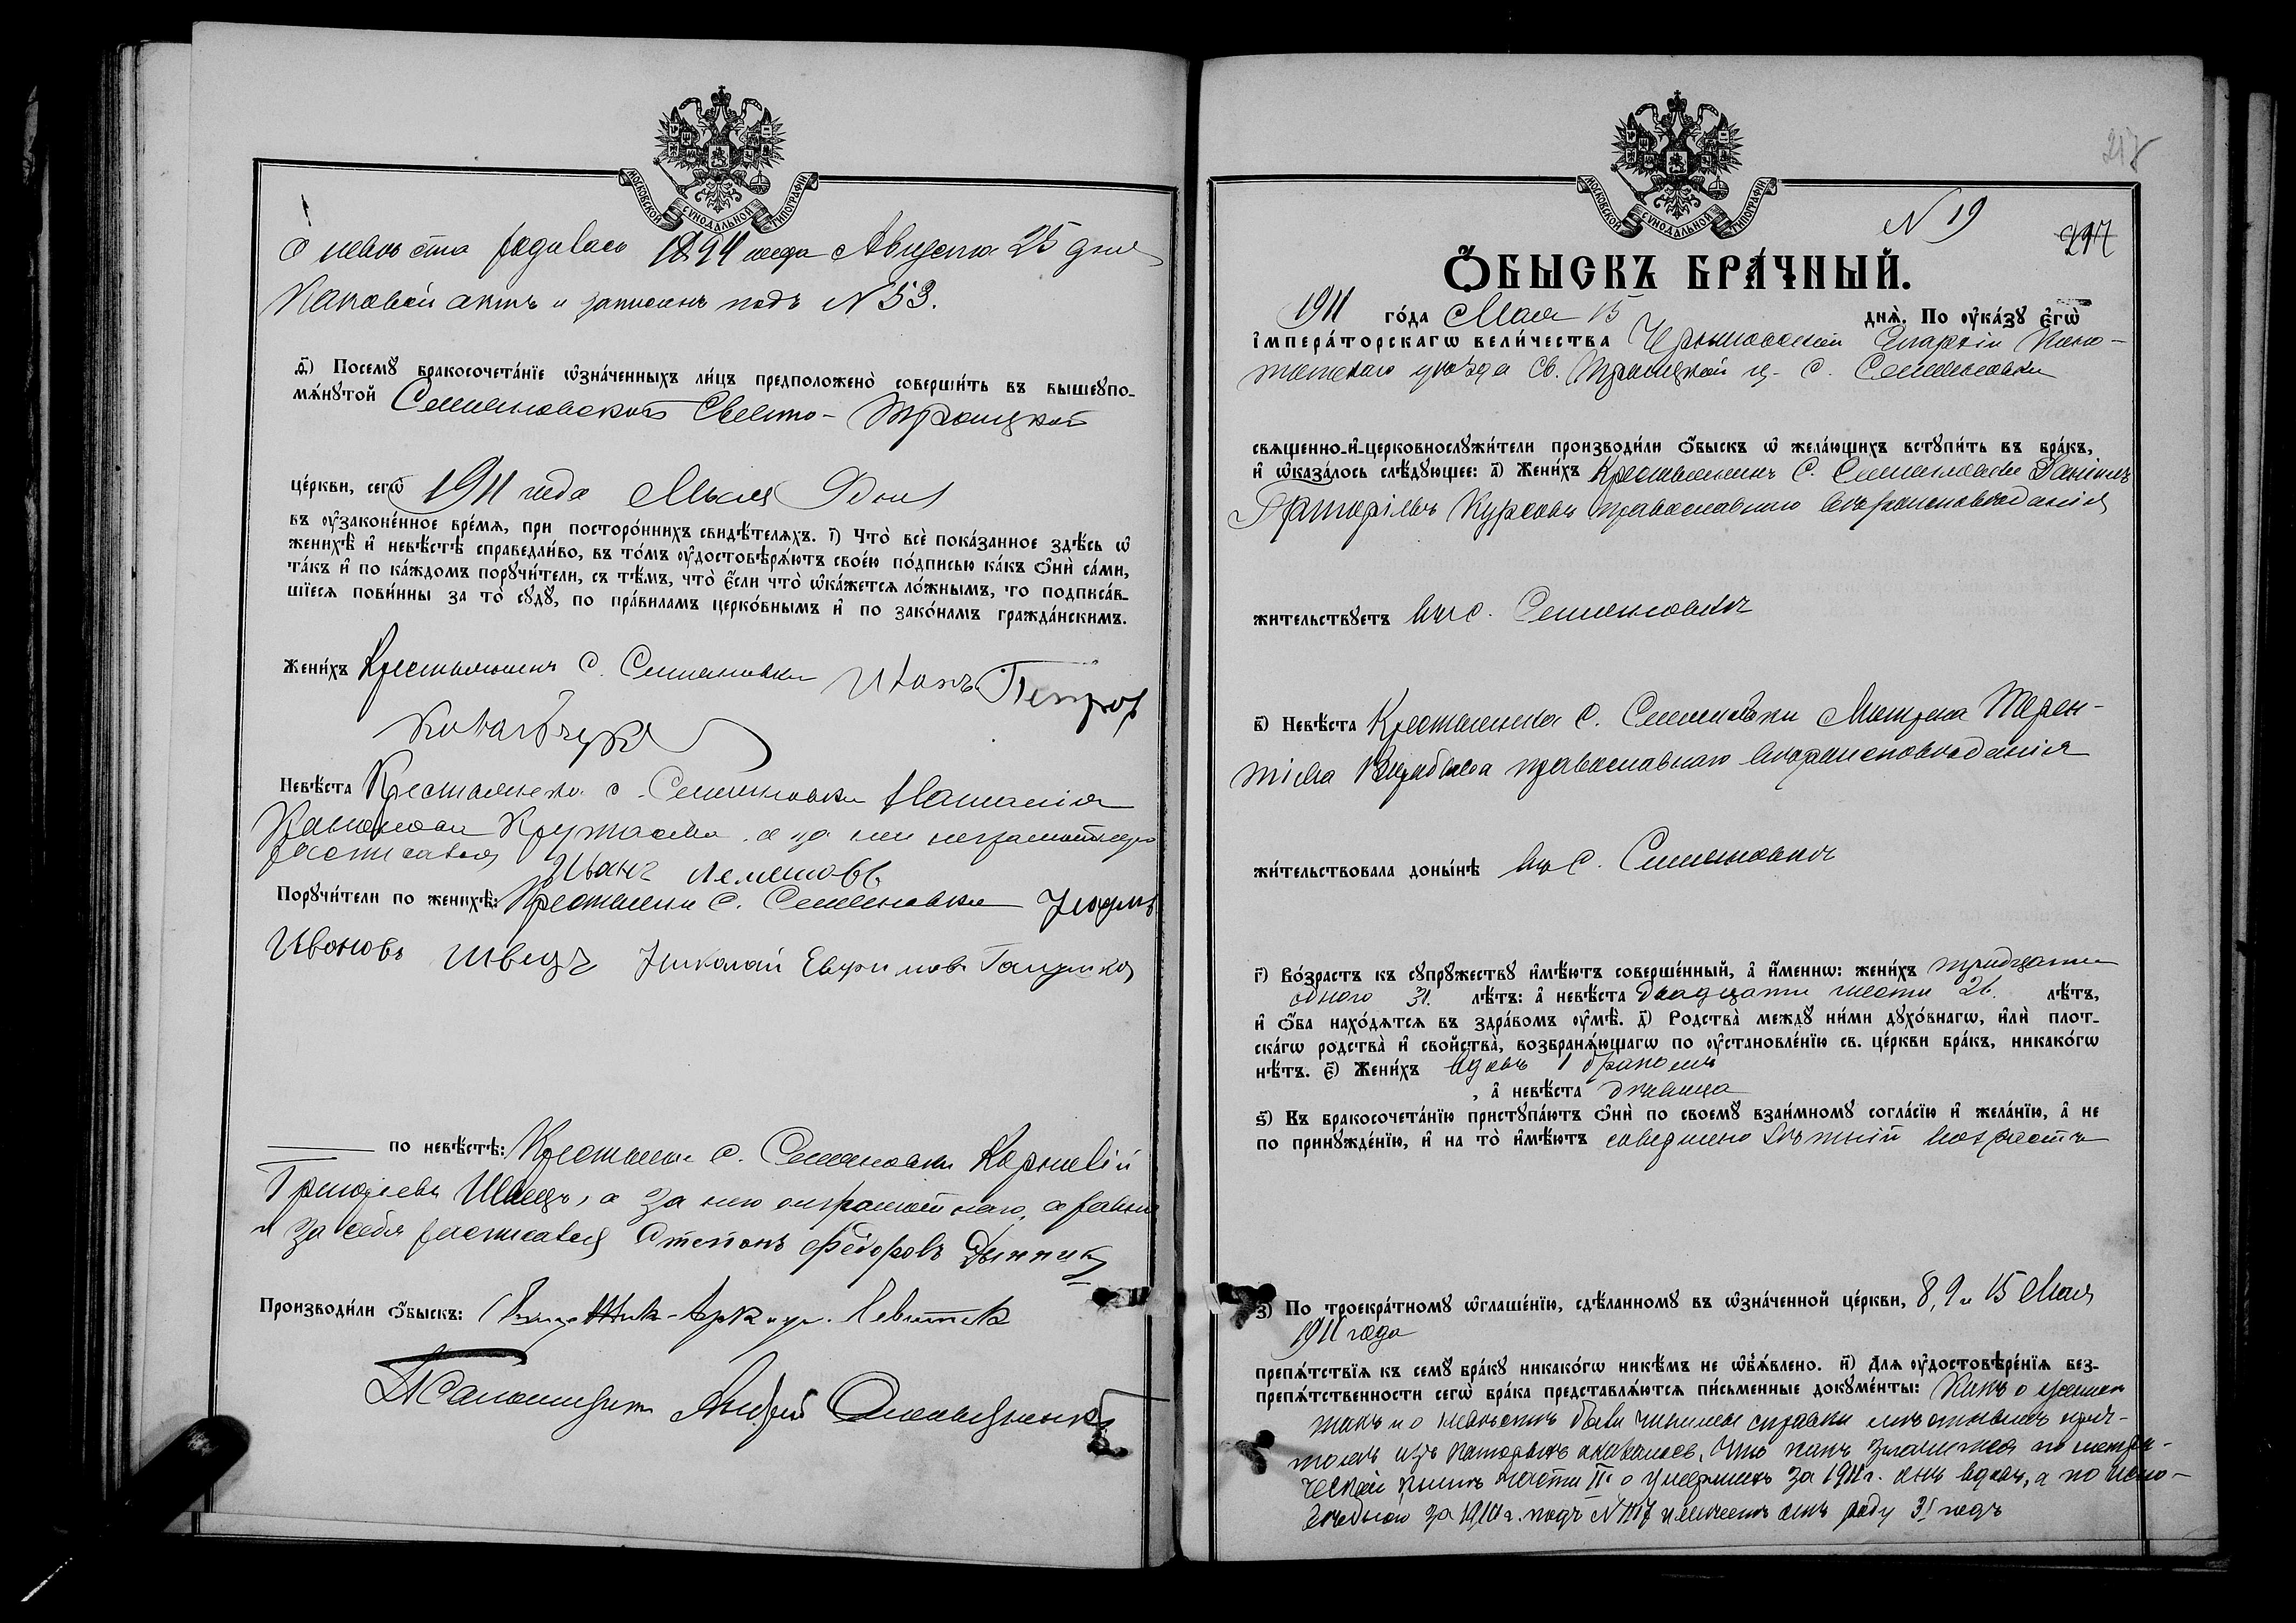 МОСКОВСКОЙ СѴНОДАЛЬНОЙ ТИПОГРАФІИ
невѣста родилась 1894 года Августа 25 дня
каковой актъ и записанъ подъ N 53.
д҃) Посемꙋ бракосочета́нїе ѡ҆зна́ченныхъ ли́цъ предположено̀ соверши́ть въ вышеꙋпо-
мѧ́нꙋтой Семеновской Свято-Троицкой
це́ркви, сегѡ̀ 1911 года Мая 9 дня
въ ᲂу҆законе́нное вре́мѧ, при посторо́ннихъ свидѣ́телѧхъ. і҃) Что̀ всѐ пока́занное здѣ́сь ѡ҆
женихѣ̀ и҆ невѣ́стѣ справедли́во, въ то́мъ ᲂу҆достовѣрѧ́ютъ свое́ю по́дписью ка́къ ѻ҆нѝ са́ми,
та́къ и҆ по ка́ждомъ порꙋчи́тели, съ тѣ́мъ, что̀ є҆́сли что̀ ѡ҆ка́жетсѧ ло́жнымъ, то подписа́в-
шїесѧ пови́нны за то̀ сꙋдꙋ̀, по пра́виламъ церко́внымъ и҆ по зако́намъ гражда́нскимъ.
Жени́хъ Крестьянинъ с. Семеновки Иванъ Петров
Ковальчукъ
Невѣ́ста Крестьянка с. Семеновки Наталія
а за нея неграмотную
расписался Иванъ Лемешовъ
Порꙋчи́тели по женихѣ̀: Крестьяне с. Семеновки
Ивановъ Швецъ Николай Евфимовъ
по невѣ́стѣ: Крестьяне с. Семеновки Корнилій
Григорьевъ Швецъ, а за него неграмотнаго, а равно
и за себя расписался Степанъ Федоровъ Дынник
Производи́ли ѻ҆́быскъ: Левитскій
Псаломщикъ Андрей
217
МОСКОВСКОЙ СѴНОДАЛЬНОЙ ТИПОГРАФІИ
N 19
217
Ѻ҆́БЫСКЪ БРА́ЧНЫЙ.
1911 го́да Мая 15 днѧ̀. По ᲂу҆ка́зꙋ є҆гѡ̀
і҆мпера́торскагѡ вели́чества Черниговской Епархіи Коно-
топскаго уѣзда Св. Троицкой ц. с. Семеновки
свѧщенно-и҆-церковнослꙋжи́тели производи́ли ѻ҆́быскъ ѡ҆ жела́ющихъ встꙋпи́ть въ бра́къ,
и҆ ѡ҆каза́лось слѣ́дꙋющее: а҃) Жени́хъ Крестьянинъ с. Семеновки Даніилъ
Григоріевъ Курсовъ православнаго вѣроисповѣданія
жи́тельствꙋетъ въ с. Семеновкѣ
в҃) Невѣ́ста Крестьянка с. Семеновки Матрена Терен-
тіева православнаго вѣроисповѣданія
жи́тельствовала доны́нѣ въ с. Семеновкѣ
г҃) Во́зрастъ къ сꙋпрꙋ́жествꙋ и҆мѣ́ютъ соверше́нный, а҆ и҆́меннѡ: жени́хъ тридцати
одного 31. лѣ́тъ: а҆ невѣ́ста двадцати шести 26. лѣ́тъ,
и҆ ѻ҆́ба нахо́дѧтсѧ въ здра́вомъ ᲂу҆мѣ̀. д҃) Родства̀ междꙋ̀ ни́ми дꙋхо́внагѡ, и҆лѝ плот-
ска́гѡ родства̀ и҆ сво́йства̀, возбранѧ́ющагѡ по ᲂу҆становле́нїю св. це́ркви бра́къ, никако́гѡ
нѣ́тъ. є҃) Жени́хъ вдовъ 1 бракомъ
, а҆ невѣ́ста дѣвица
ѕ҃) Къ бракосочета́нїю пристꙋпа́ютъ ѻ҆нѝ по своемꙋ̀ взаи́мномꙋ согла́сїю и҆ жела́нїю, а҆ не
по принꙋжде́нїю, и҆ на то̀ и҆мѣ́ютъ совершенно лѣтній возрастъ
з҃) По троекра́тномꙋ ѡ҆глаше́нїю, сдѣ́ланномꙋ въ ѡ҆зна́ченной це́ркви, 8, 9 и 15 Мая
1911 года
препѧ́тствїѧ къ семꙋ̀ бра́кꙋ никако́гѡ никѣ́мъ не ѡ҆б̾ѧ́влено. и҃) Длѧ ᲂу҆достовѣре́нїѧ без-
препѧ́тственности сегѡ̀ бра́ка представлѧ́ютсѧ пи́сьменные докꙋме́нты: Какъ о женихѣ
такъ и о невѣстѣ были чинимы справки мѣстнымъ прич-
томъ изъ которыхъ оказалось, что какъ значится по метри-
ческой книгѣ части III о умершихъ за 1911 г. онъ вдовъ, а по испо-
вѣдной за 1910 г. подъ N 117 имѣетъ онъ роду 31 годъ